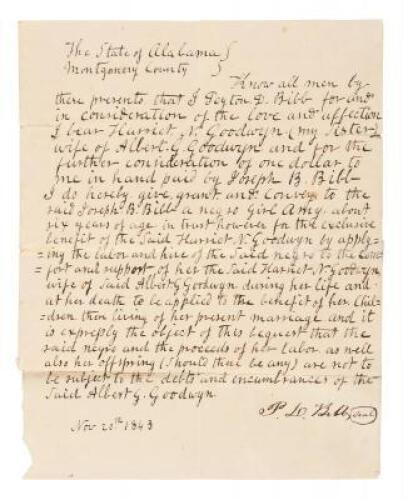 The State of Alabama }
Montgomery County }
Know all men by
these presents that I Peyton D. Bibb for and
in consideration of the love and affection
I bear Harriet N. Goodwyn (my sister)
wife of Albert G. Goodwyn and for the
further consideration of one dollar to
me in hand paid by Joseph B. Bibb
I do hereby give, grant and convey to the
said Joseph B. Bibb a negro Girl Amy about
six years of age in trust however for the exclusive
benefit of the said Harriet N. Goodwyn by apply-
=ing the labor and hire of the said negro to the Com=
=fort and support of her the said Harriet N. Goodwyn
wife of said Albert G Goodwyn during her life and
at her death to be applied to the benefit of her Chil=
=dren then living of her present marriage and it
is expressly the object of this bequest that the
said negro and the proceeds of her labor as well
also her offspring (should there be any) are not to
be subject to the debts and encumbrances of the
said Albert G. Goodwyn.
P. D. Bibb (seal)
Nov 20th 1843